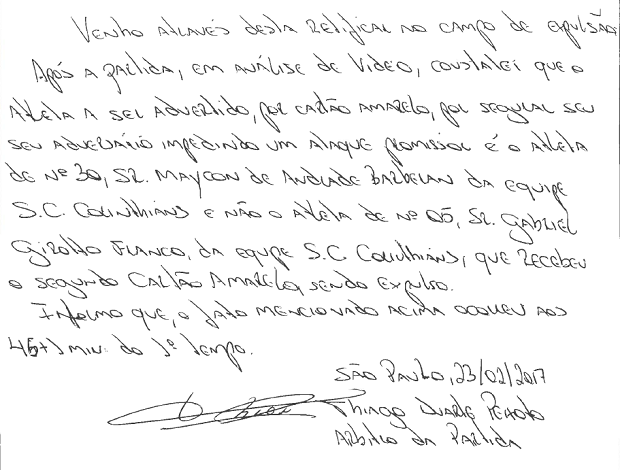 Venho através desta retificar no campo de expulsão
Após a partida, em análise de vídeo, constatei que o
atleta a ser advertido, por cartão amarelo, por segurar seu
seu adversário impedindo um ataque promissor é o atleta
de nº 30, Sr. Maycon de Andrade Barberan da equipe
S.C. Corinthians e não o atleta de nº 05, Sr. Gabriel
Girotto Franco, da equipe S.C. Corinthians, que recebeu
o segundo cartão amarelo, sendo expulso.
Informo que, o fato mencionado acima ocorreu aos
45+1 min. do 1º tempo.
São Paulo, 23/02/2017
Thiago Duarte Peixoto
Árbitro da Partida